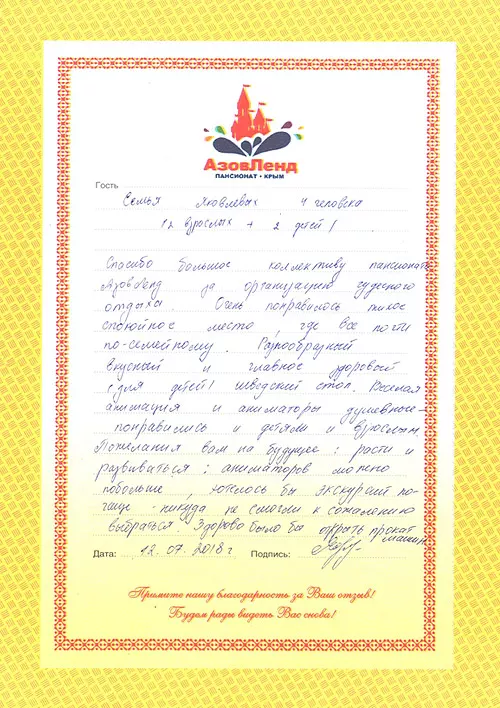 АзовЛенд
ПАНСИОНАТ • КРЫМ
Гость
Семья Яковлевых 4 человека
(2 взрослых + 2 детей)
Спасибо большое коллективу пансионата
АзовЛенд за организацию чудесного
отдыха. Очень понравилось тихое
спокойное место, где все почти
по-семейному. Разнообразный
вкусный и главное здоровый
(для детей) шведский стол. Веселая
анимация и аниматоры душевные -
понравились и детям и взрослым.
Пожелания вам на будущее: расти и
развиваться: аниматоров можно
побольше, хотелось бы экскурсий по-
чаще - никуда не смогли к сожалению
выбраться. Здорово было бы открыть прокат
машин
Дата: 12.07.2018 г Подпись:
Примите нашу благодарность за Ваш отзыв!
Будем рады видеть Вас снова!